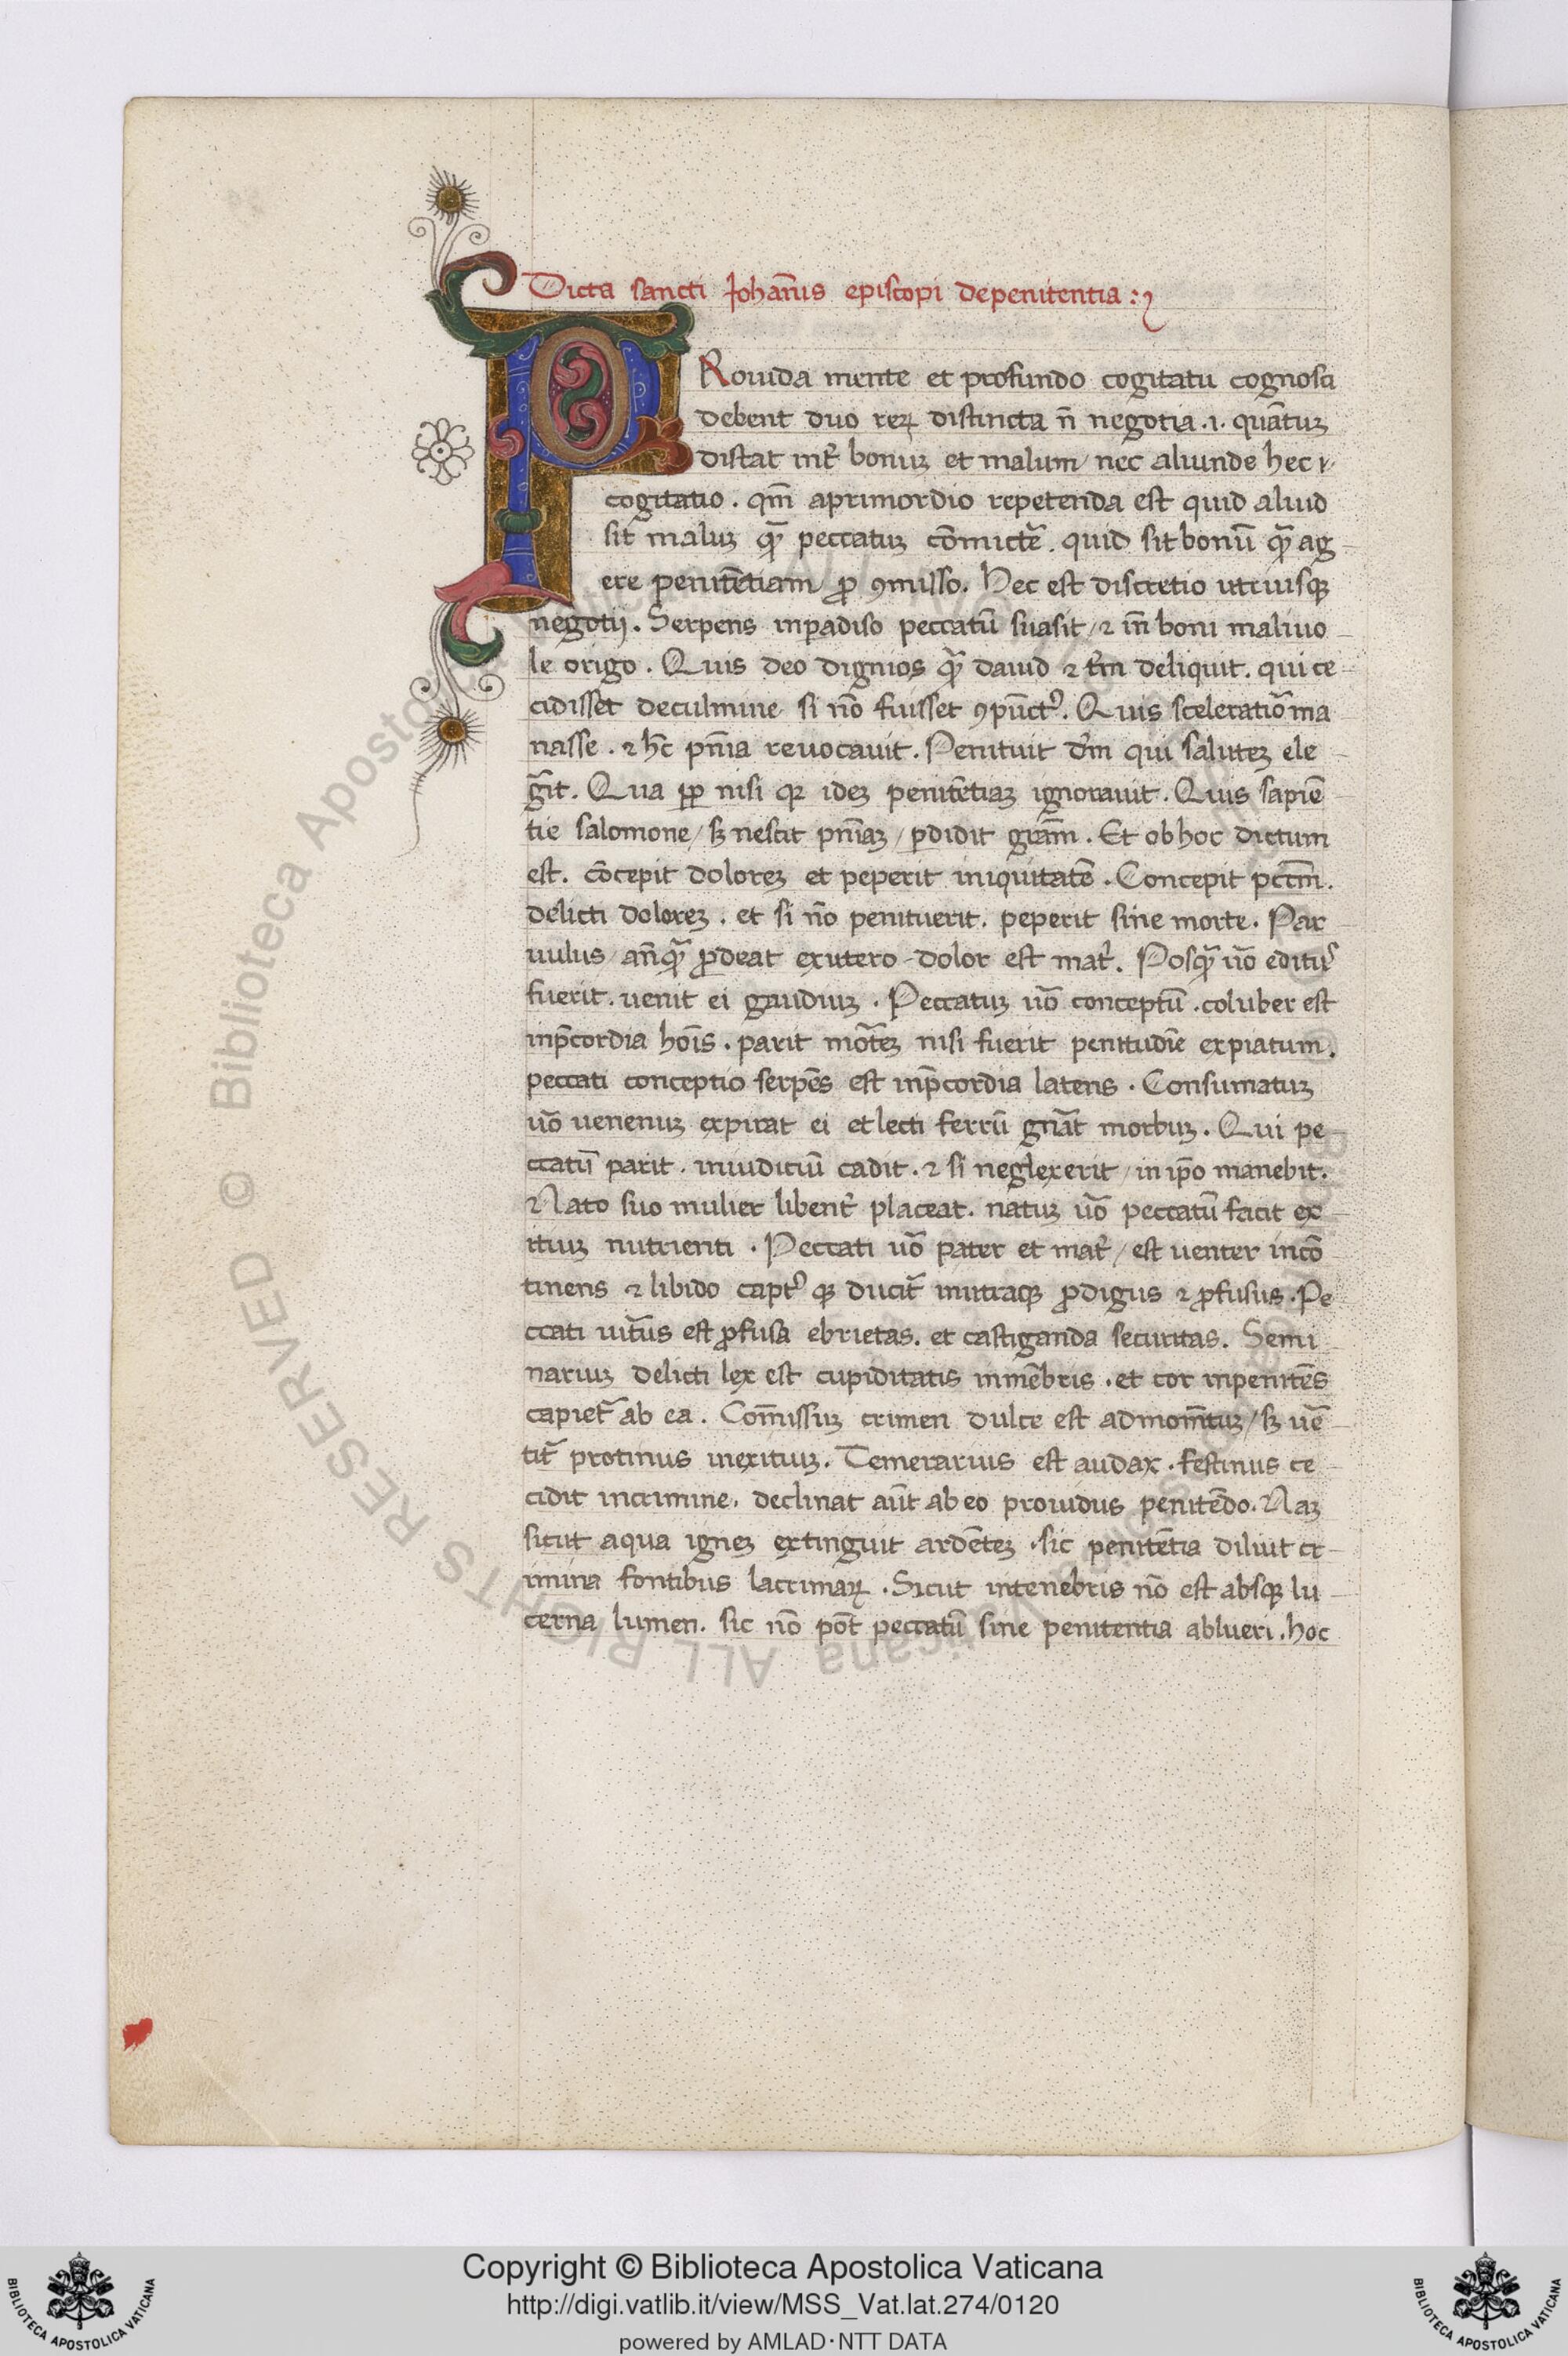 Dicta sancti Johan̄is episcopi de penitentia :
PRouida mente et profundo cogitatu cognosci
debent duo reꝝ distincta n̄ negotia .i. quātuꝫ
distat int̉ bonuꝫ et malum / nec aliunde hec
cogitatio . qm̄ aprimordio repetenda est quid aliud
sit maluꝫ qᷓ peccatuꝫ cōmictē . quid sit bonū qᷓ ag
ere penitētiam / ꝓ ꝯmisso . Hec est discretio utriusqꝫ
negotij . Serpens inꝑadiso peccatū suasit / ⁊ in̄ boni maliuo
le origo . Quis deo dignios qᷓ dauid ⁊ tm̄ deliquit . qui ce
cidisset deculmine si nō fuisset ꝯpūctꝰ . Quis sceleratio ma
nasse . ⁊ hc̄ pn̄ia reuocauit . Penituit dm̄ qui saluteꝫ ele
git . Qua nisi qꝛ ideꝫ penitētiaꝫ ignorauit . Quis sapiē
tie salomone / sꝫ nescit pn̄iaꝫ / ꝑdidit grām . Et ob hoc dictum
est . cōcepit doloreꝫ et peperit iniquitatē . Concepit pctm̄ .
delicti doloreꝫ . et si nō penituerit . peperit sine morte . Par
uulus / an̄qᷓ ꝓdeat exutero dolor est mat̉ . Posqᷓ uō editꝰ
fuerit . uenit ei gaudiuꝫ . Peccatuꝫ uō conceptū . coluber est
inp̄cordia hoīs . parit mortēꝫ nisi fuerit penitudīe expiatum .
peccati conceptio serpēs est inp̄cordia latens . Consumatuꝫ
uō uenenuꝫ expirat ei et lecti ferrū gn̄at morbuꝫ . Qui pe
ccatū parit . iniudiciū cadit . ⁊ si neglexerit / in ip̄o manebit .
Nato suo mulier libent̉ placeat . natuꝫ uō peccatū facit ex
ituꝫ nutrienti . Peccati uō pater et mat̉ / est uenter incō
tinens ⁊ libido captꝰ qꝫ ducit̉ inutraqꝫ ꝓdigus ⁊ ꝓfusus . Pe
ccati uit̄us est ꝓfusa ebrietas . et castiganda securitas . Semi
nariuꝫ delicti lex est cupiditatis inmēbris . et cor inpenitēs
capiet̉ ab ea . Com̄issuꝫ crimen dulce est admom̄tuꝫ / sꝫ uē
tit̉ protinus inexituꝫ . Temerarius est audax . festinus ce
cidit incrimine . declinat aūt ab eo prouidus penitēdo . Naꝫ
sicut aqua igneꝫ extinguit ardēteꝫ . sic penitētia diluit cr
imina fontibus lacrimaꝝ . Sicut intenebris nō est absqꝫ lu
cerna lumen . sic nō pōt peccatū sine penitentia ablueri . hoc
Copyright © Biblioteca Apostolica Vaticana
http://digi.vatlib.it/view/MSS_Vat.lat.274/0120
powered by AMLAD·NTT DATA
BIBLIOTECA APOSTOLICA VATICANA
BIBLIOTECA APOSTOLICA VATICANA
© Biblioteca Apostolica Vaticana ALL RIGHTS RESERVED